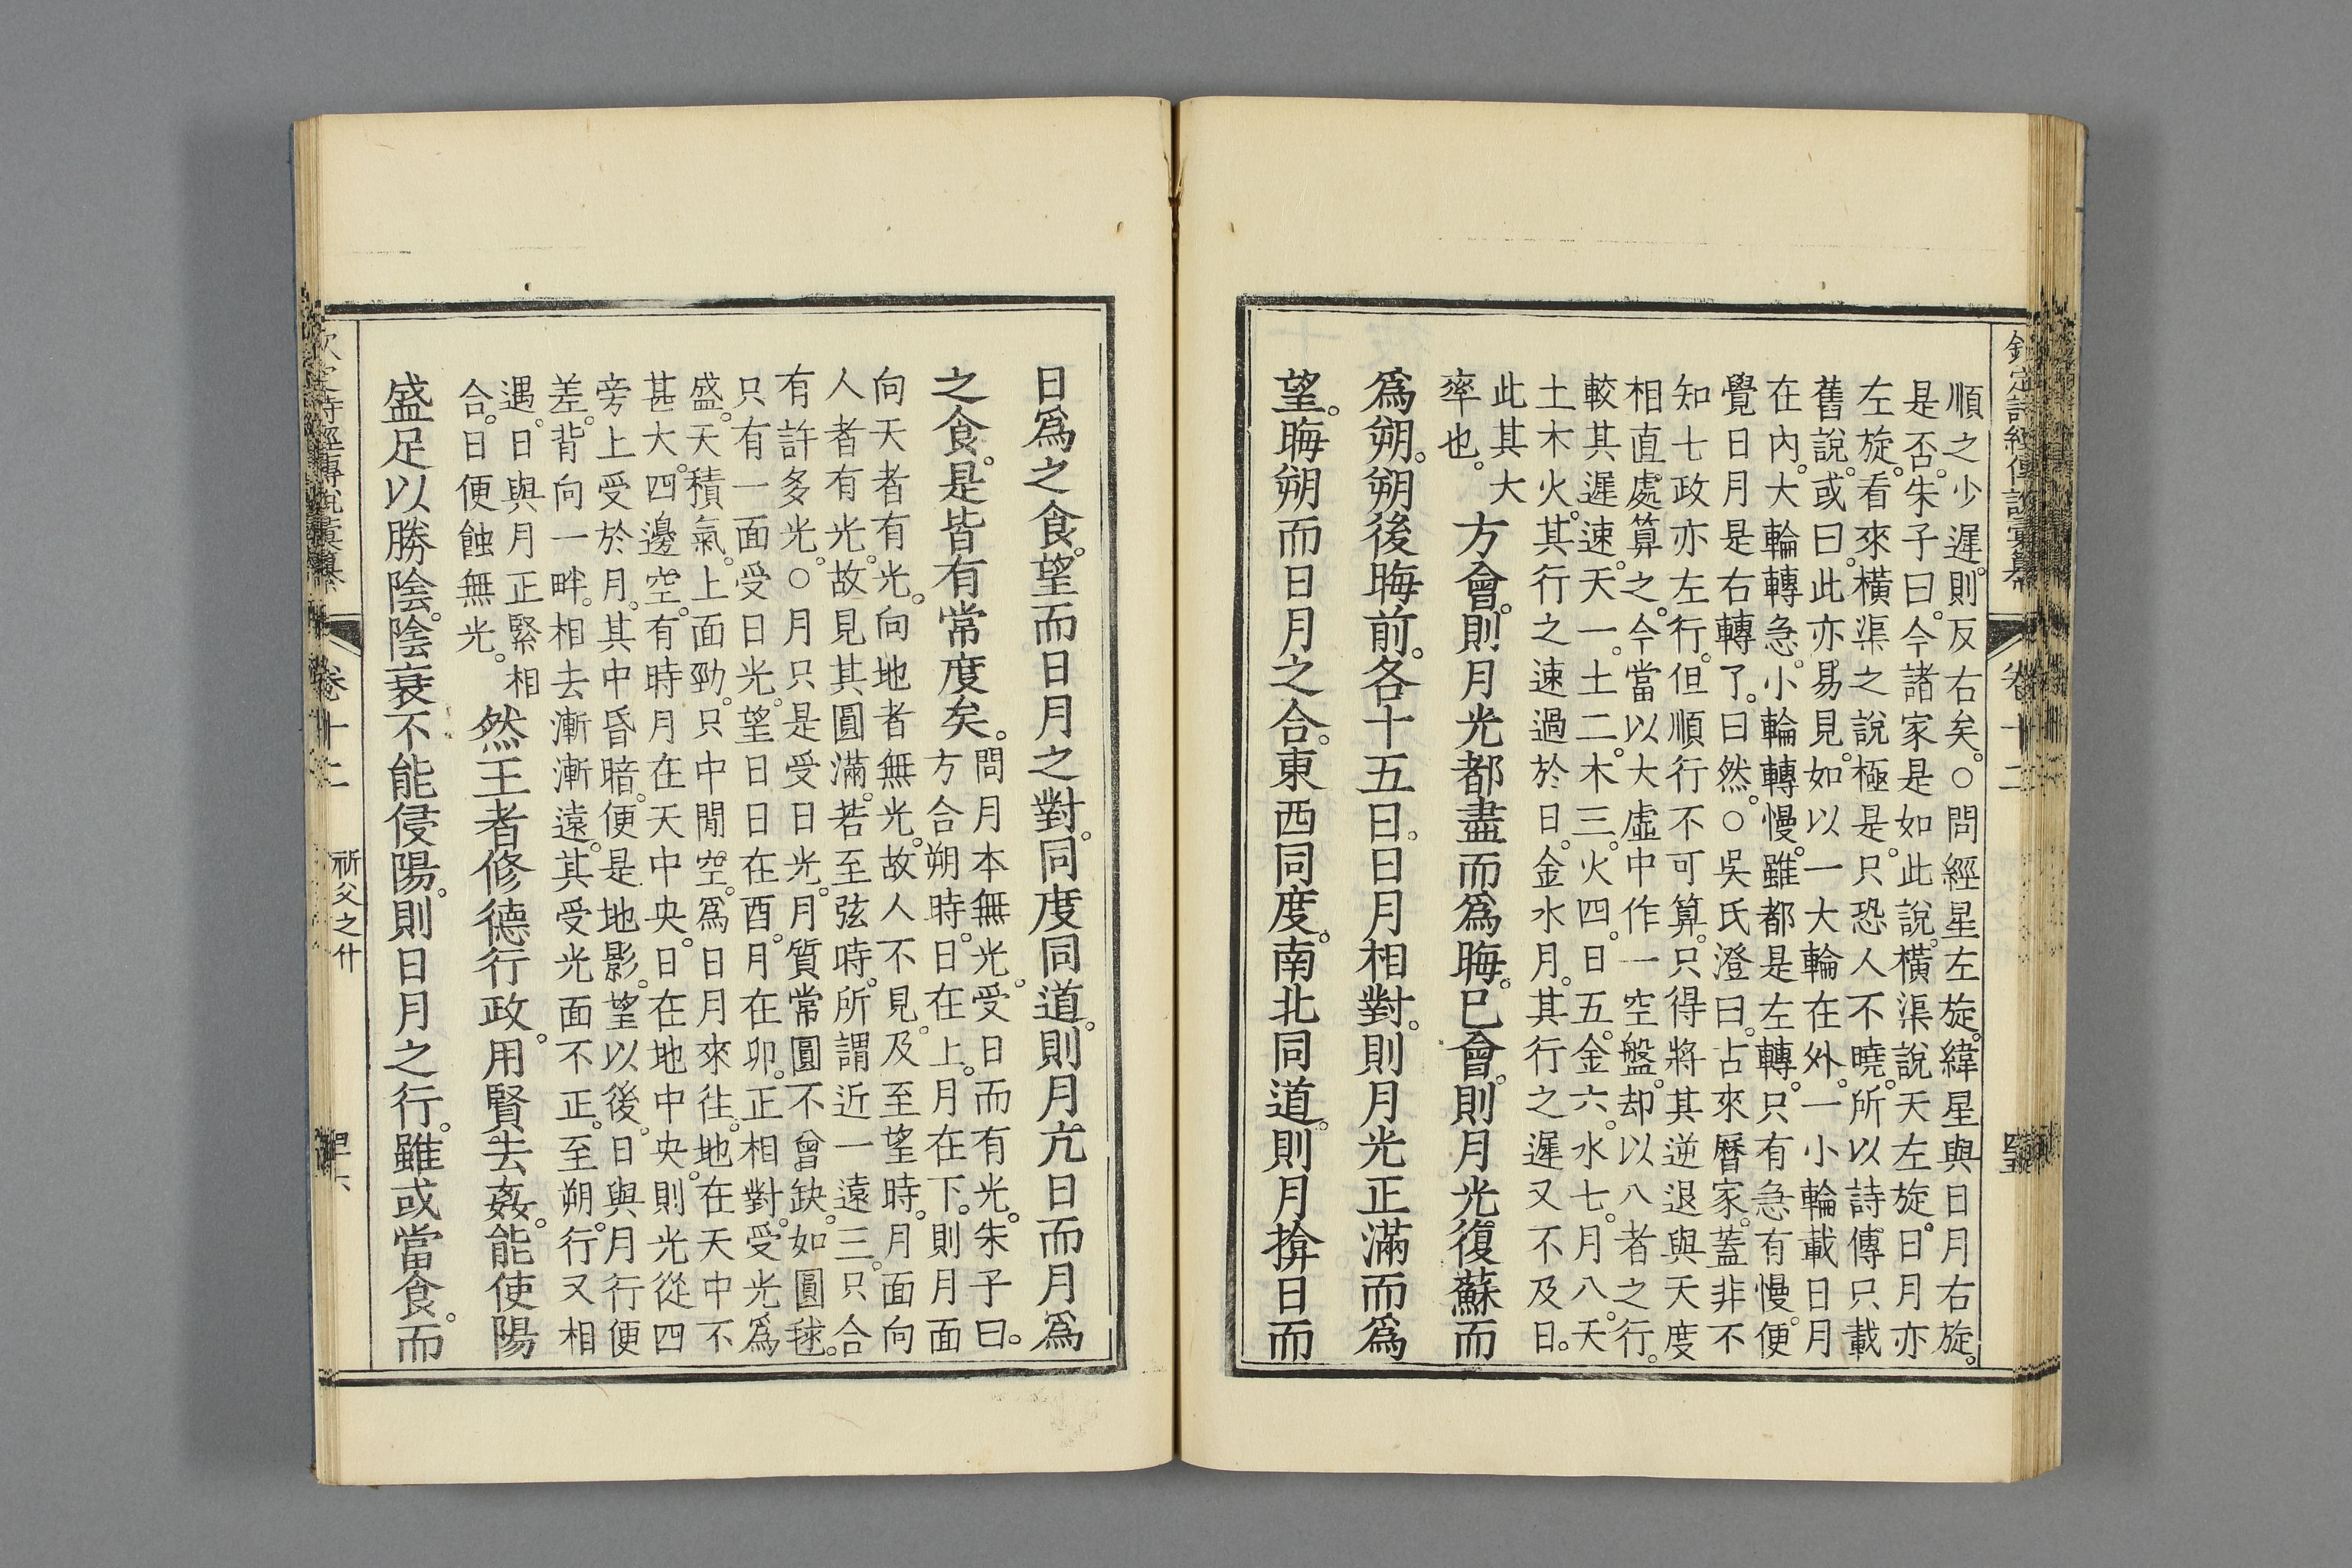 欽定詩經傳說彙纂 卷十二
順之少遲。則反右矣。○問經星左旋。緯星與日月右旋。
是否。朱子曰。今諸家是如此說。橫渠說天左旋。日月亦
左旋。看來橫渠之說極是。只恐人不曉。所以詩傳只載
舊說。或曰。此亦易見。如以一大輪在外。一小輪載日月
在內。大輪轉急。小輪轉慢。雖都是左轉。只有急有慢。便
覺日月是右轉了。曰然。○吳氏澄曰。占來曆家。蓋非不
知七政亦左行。但順行不可算。只得將其逆退與天度
相直處算之。今當以大虛中作一空盤。却以八者之行。
較其遲速。天一。土二。木三。火四。日五。金六。水七。月八。天
土木火。其行之速過於日。金水月。其行之遲又不及日。
此其大
率也。
方會。則月光都盡而爲晦。巳會。則月光復蘇而
爲朔。朔後晦前。各十五日。日月相對。則月光正滿而爲
望。晦朔而日月之合。東西同度。南北同道。則月揜日而
日爲之食。望而日月之對。同度同道。則月亢日而月爲
之食。是皆有常度矣。
問月本無光。受日而有光。朱子曰。
方合朔時。日在上。月在下。則月面
向天者有光。向地者無光。故人不見。及至望時。月面向
人者有光。故見其圓滿。若至弦時。所謂近一遠三。只合
有許多光。○月只是受日光。月質常圓不曾缺。如圓毬。
只有一面受日光。望日日在酉。月在卯。正相對。受光爲
盛。天積氣。上面勁。只中閒空。爲日月來往。地在天中不
甚大。四邊空。有時月在天中央。日在地中央。則光從四
旁上受於月。其中昏暗。便是地影。望以後。日與月行便
差。背向一畔。相去漸漸遠。其受光面不正。至朔。行又相
遇。日與月正緊相
合。日便蝕無光。
然王者修德行政。用賢去姦。能使陽
盛足以勝陰。陰衰不能侵陽。則日月之行。雖或當食。而
卷十二 祈父之什